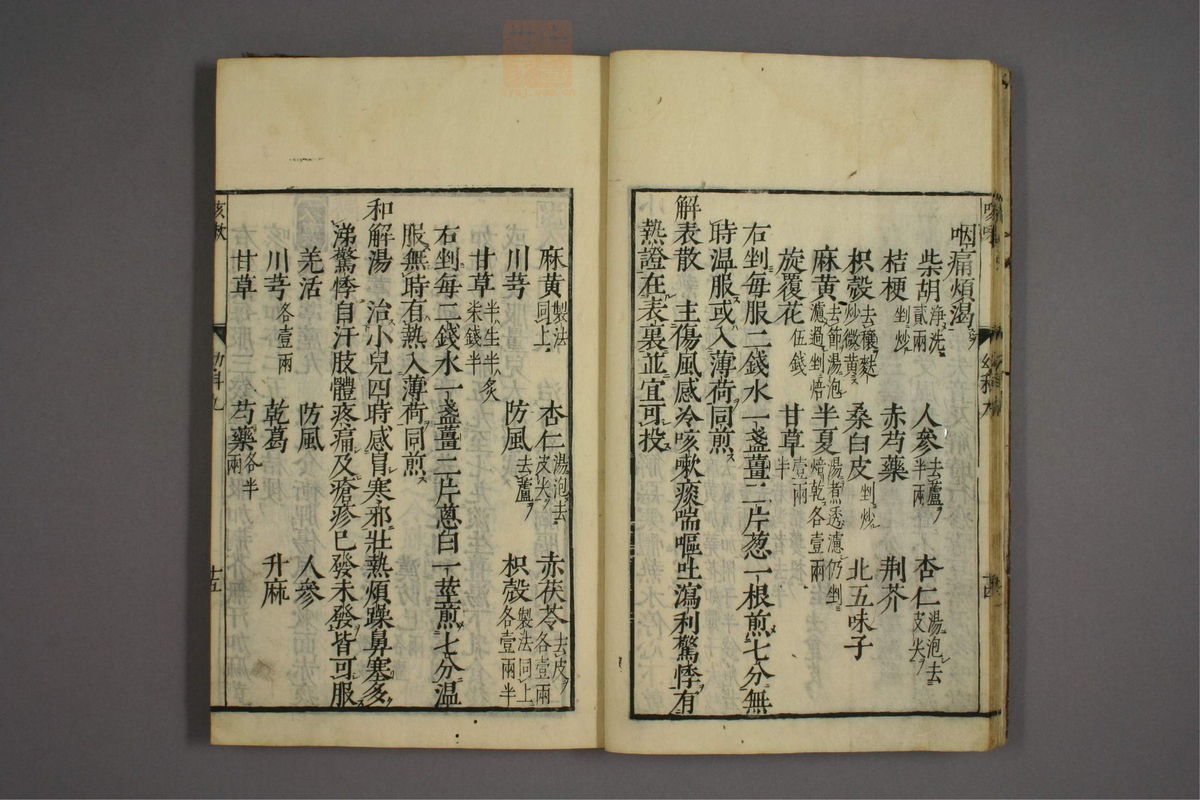 咽痛煩渴
柴胡淨洗貳兩 人參去蘆半兩 杏仁湯泡去皮尖
桔梗剉炒 赤芍藥 荆芥
枳殼去穰麩炒微黃 桑白皮剉炒 北五味子
麻黃去節湯泡濾過剉焙 半夏湯煮透濾仍剉焙乾各壹兩
旋覆花伍錢 甘草壹兩半
右剉每服二錢水一盞薑二片葱一根煎七分無
時温服或入薄荷同煎
解表散 主傷風感冷咳嗽痰喘嘔吐瀉利驚悸有
熱證在表裏並宜可投
麻黃製法同上 杏仁湯泡去皮尖 赤茯苓去皮各壹兩
川芎 防風去蘆 枳殼製法同上各壹兩半
甘草半生半炙柒錢半
右剉每二錢水一盞薑二片蔥白一莖煎七分温
服無時有熱入薄荷同煎
和解湯 治小兒四時感冒寒邪壯熱煩躁鼻塞多
涕驚悸自汗肢體疼痛及瘡疹已發未發皆可服
羌活 防風 人參
川芎各壹兩 乾葛 升麻
甘草 芍藥各半兩
十五